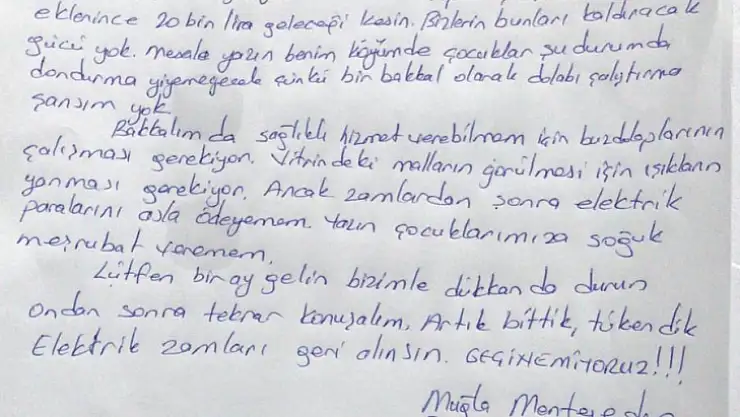 eklenince 20 bin lira geleceği kesin. Bizlerin bunları kaldıracak
gücü yok. mesela yazın benim köyümde çocuklar şu durumda
dondurma yiyemeyecek çünkü bir bakkal olarak dolabı çalıştırma
şansım yok.
Bakkalım da sağlıklı hizmet verebilmem için buzdolaplarının
çalışması gerekiyor. Vitrindeki malların görülmesi için ışıkların
yanması gerekiyor. Ancak zamlardan sonra elektrik
paralarını asla ödeyemem. Yazın çocuklarımıza soğuk
meşrubat veremem.
Lütfen bir ay gelin bizimle dükkanda durun
Ondan sonra tekrar konuşalım. Artık bittik, tükendik
Elektrik zamları geri alınsın. GEÇİNEMİYORUZ!!!
Muğla